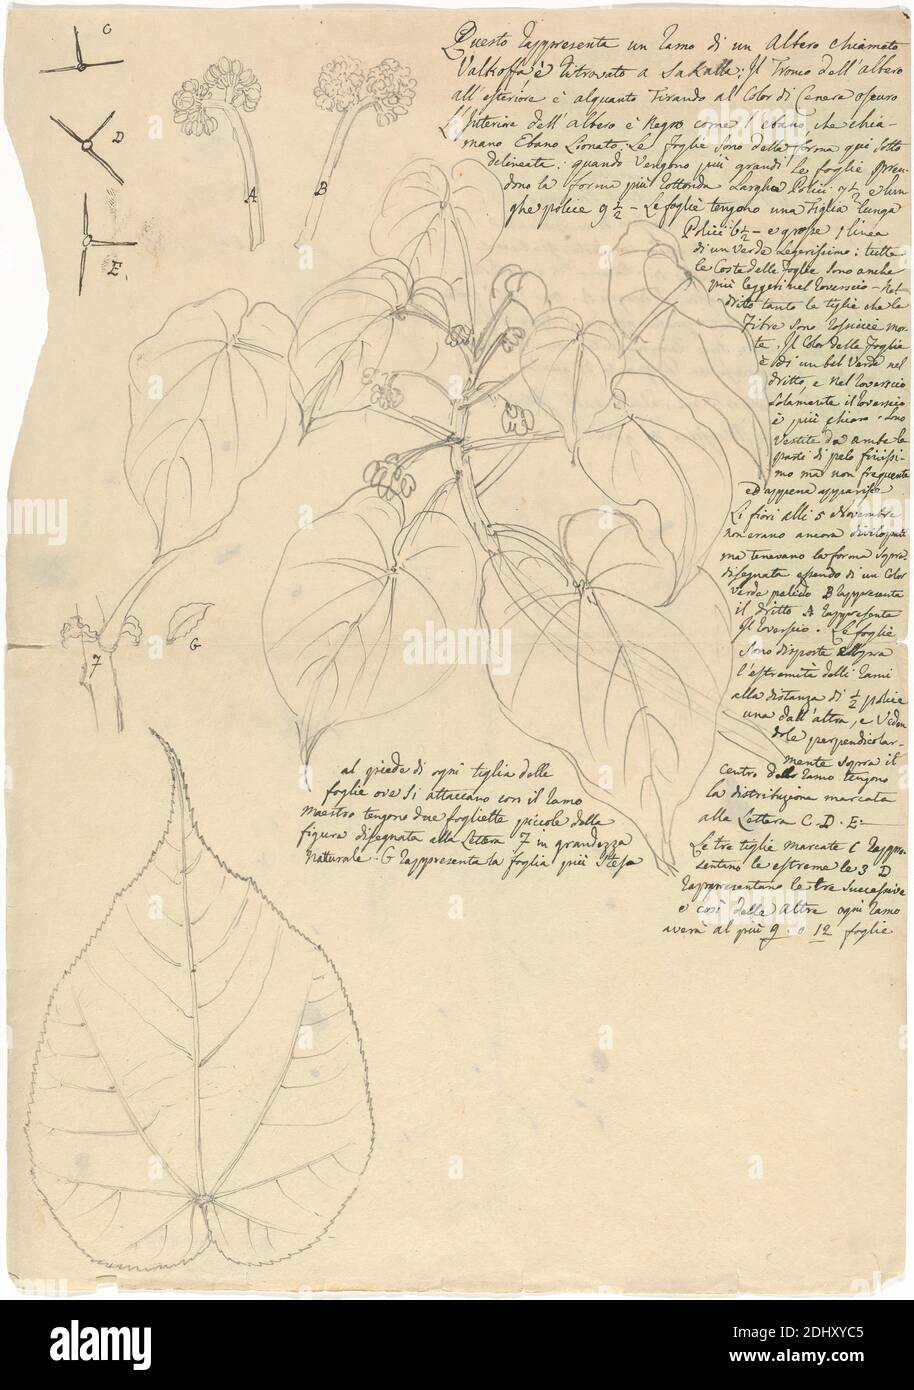 C
D
E.
A
B
Questo rappresenta un ramo di un Albero chiamato
Valkoffa è ritrovato a Sakalla: Il Tronco dell'albero
all'esteriore è alquanto Tirando al Color di Cenere oscuro
L'Interiore dell'albero è Negro come l'ebano che chia-
mano Ebano Lionato. Le foglie sono della forma qui sotto
delineata: quando vengono più grandi le foglie pren-
dono la forma più rottonda Larghe Polici 7½ e lun
ghe police 9½ - Le foglie tengono una Tiglia lunga
Polici 6½ - e grosse 1 linea
di un verde Legerissimo: tutte
le Coste delle foglie sono anche
più leggeri nel roverscio - Nel
dritto tanto le tiglie che le
Fibre sono rossiccie mor-
te. Il Color delle foglie
è di un bel verde nel
dritto, e nel roverscio
solamente il roverscio
è più chiaro. Sono
vestite da ambe le
parte di pelo finissi-
mo ma non frequente
ed appena apparisce
Li fiori alli 5 Novembre
non erano ancora diviluppati
ma tenevano la forma sopra
disegnata essendo di un Color
verde palido B rappresenta
il dritto A rappresenta
Il roverscio. Le foglie
sono disposte sopra
l'estremità delli rami
alla distanza di ½ police
una dall'altra, e veden
dole perpendicolar-
mente sopra il
centro dello ramo tengono
la distribuzione marcata
alla Lettera C. D. E. -
Le tre tiglie marcate C rappre-
sentano le estreme le 3 D
rappresentano le tre successive
e così delle altre ogni ramo
averà al più 9 o 12 foglie
7
G
al piede di ogni tiglia delle
foglie ove si attaccano con il ramo
maestro tengono due fogliette piccole della
figura disegnata alla Lettera 7 in grandezza
naturale. G rappresenta la foglia più stesa
alamy
Image ID: 2DHXYC5
www.alamy.com